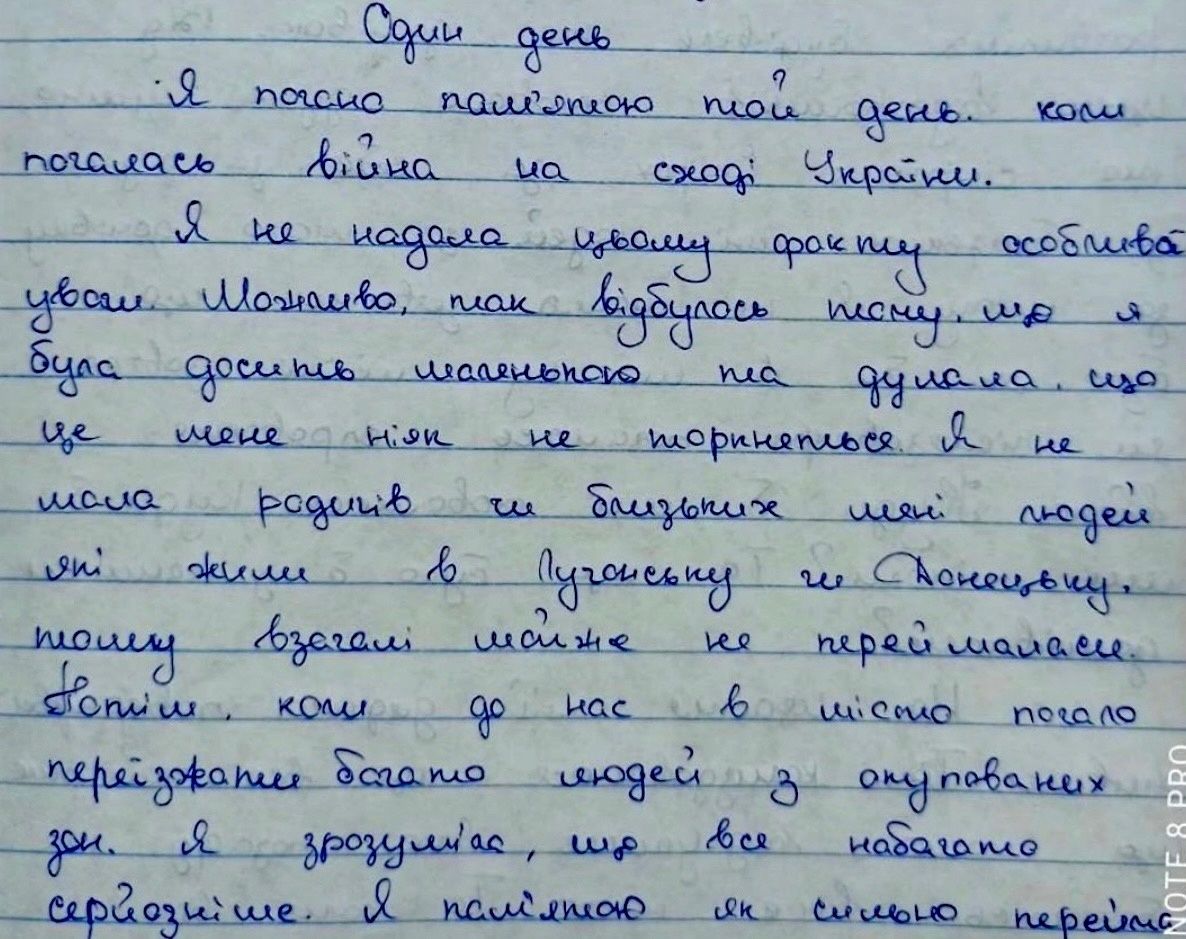 Один день
Я погано пам'ятаю той день. коли
почалась війна на сході України.
Я не надала цьому факту особливої
уваги. Можливо, так відбулось тому, що я
була досить маленькою та думала, що
це мене ніяк не торкнеться. Я не
мала родичів чи близьких мені людей
які жили в Луганську чи Донецьку,
тому взагалі майже не переймалась.
Потім, коли до нас в місто почало
переїзжати багато людей з окупованих
зон. Я зрозуміла, що все набагато
серйозніше. Я пам'ятаю як сильно перейма
NOTE 8 PRO